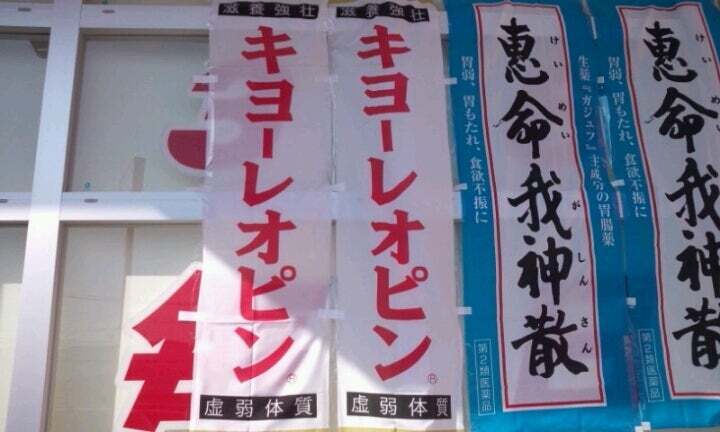 滋養強壮
キヨーレオピン
®
虚弱体質
滋養強壮
キヨーレオピン
®
虚弱体質
生薬『ガジュツ』主成分の胃腸薬
恵命我神散
けいめいがしんさん
胃弱、胃もたれ、食欲不振に
第2類医薬品
恵命我神散
けいめいがしん
胃弱、胃もたれ、食欲不振に
第2類医薬品